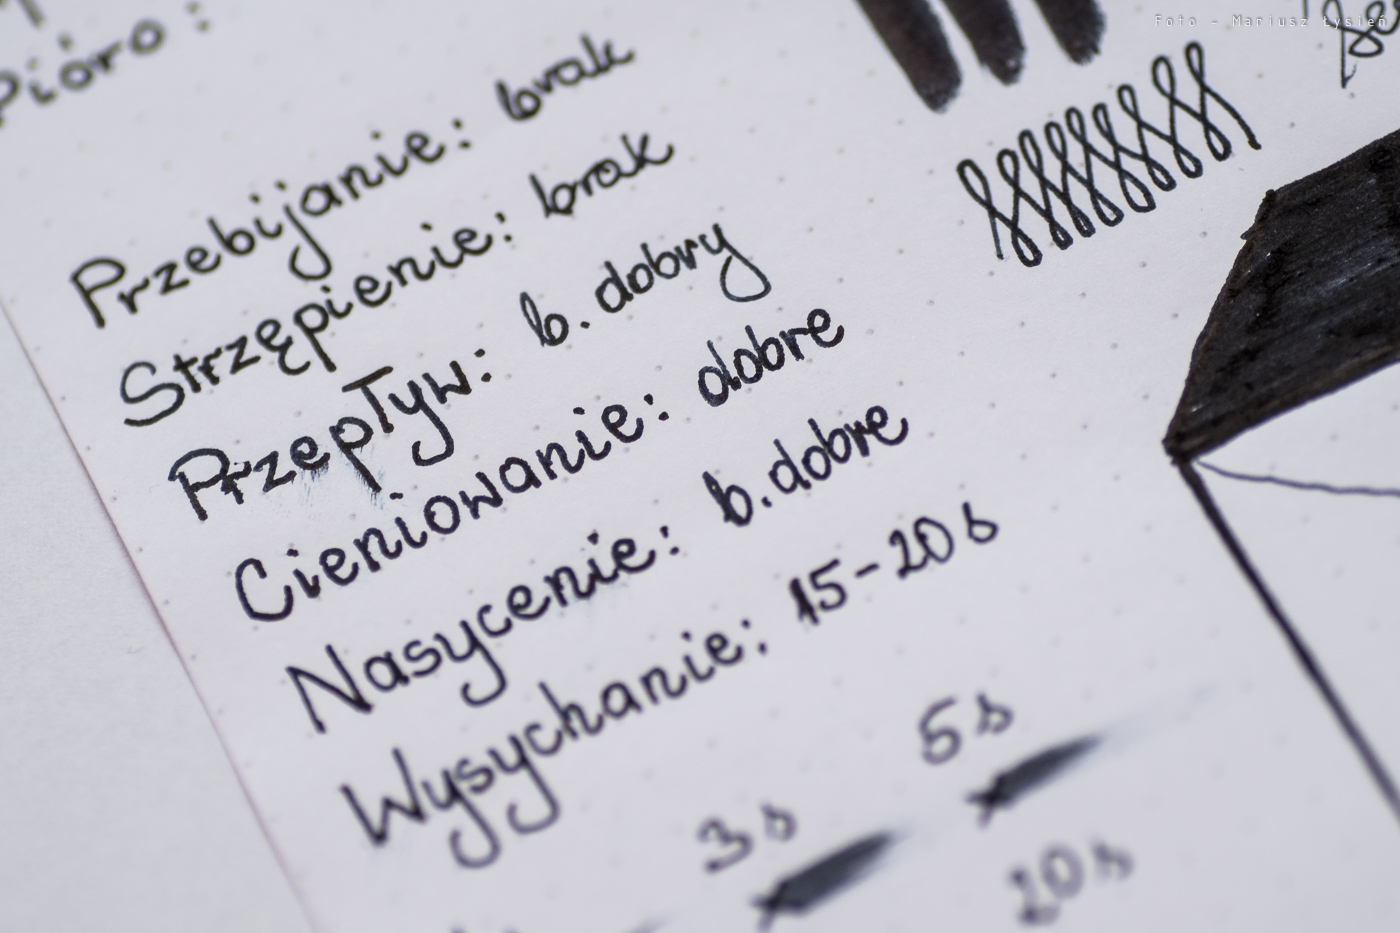 Foto - Mariusz Łysień
Pióro :
Przebijanie: brak
Strzępienie: brak
Przepływ: b. dobry
Cieniowanie: dobre
Nasycenie: b. dobre
Wysychanie: 15-20 s
5s
3s
20s